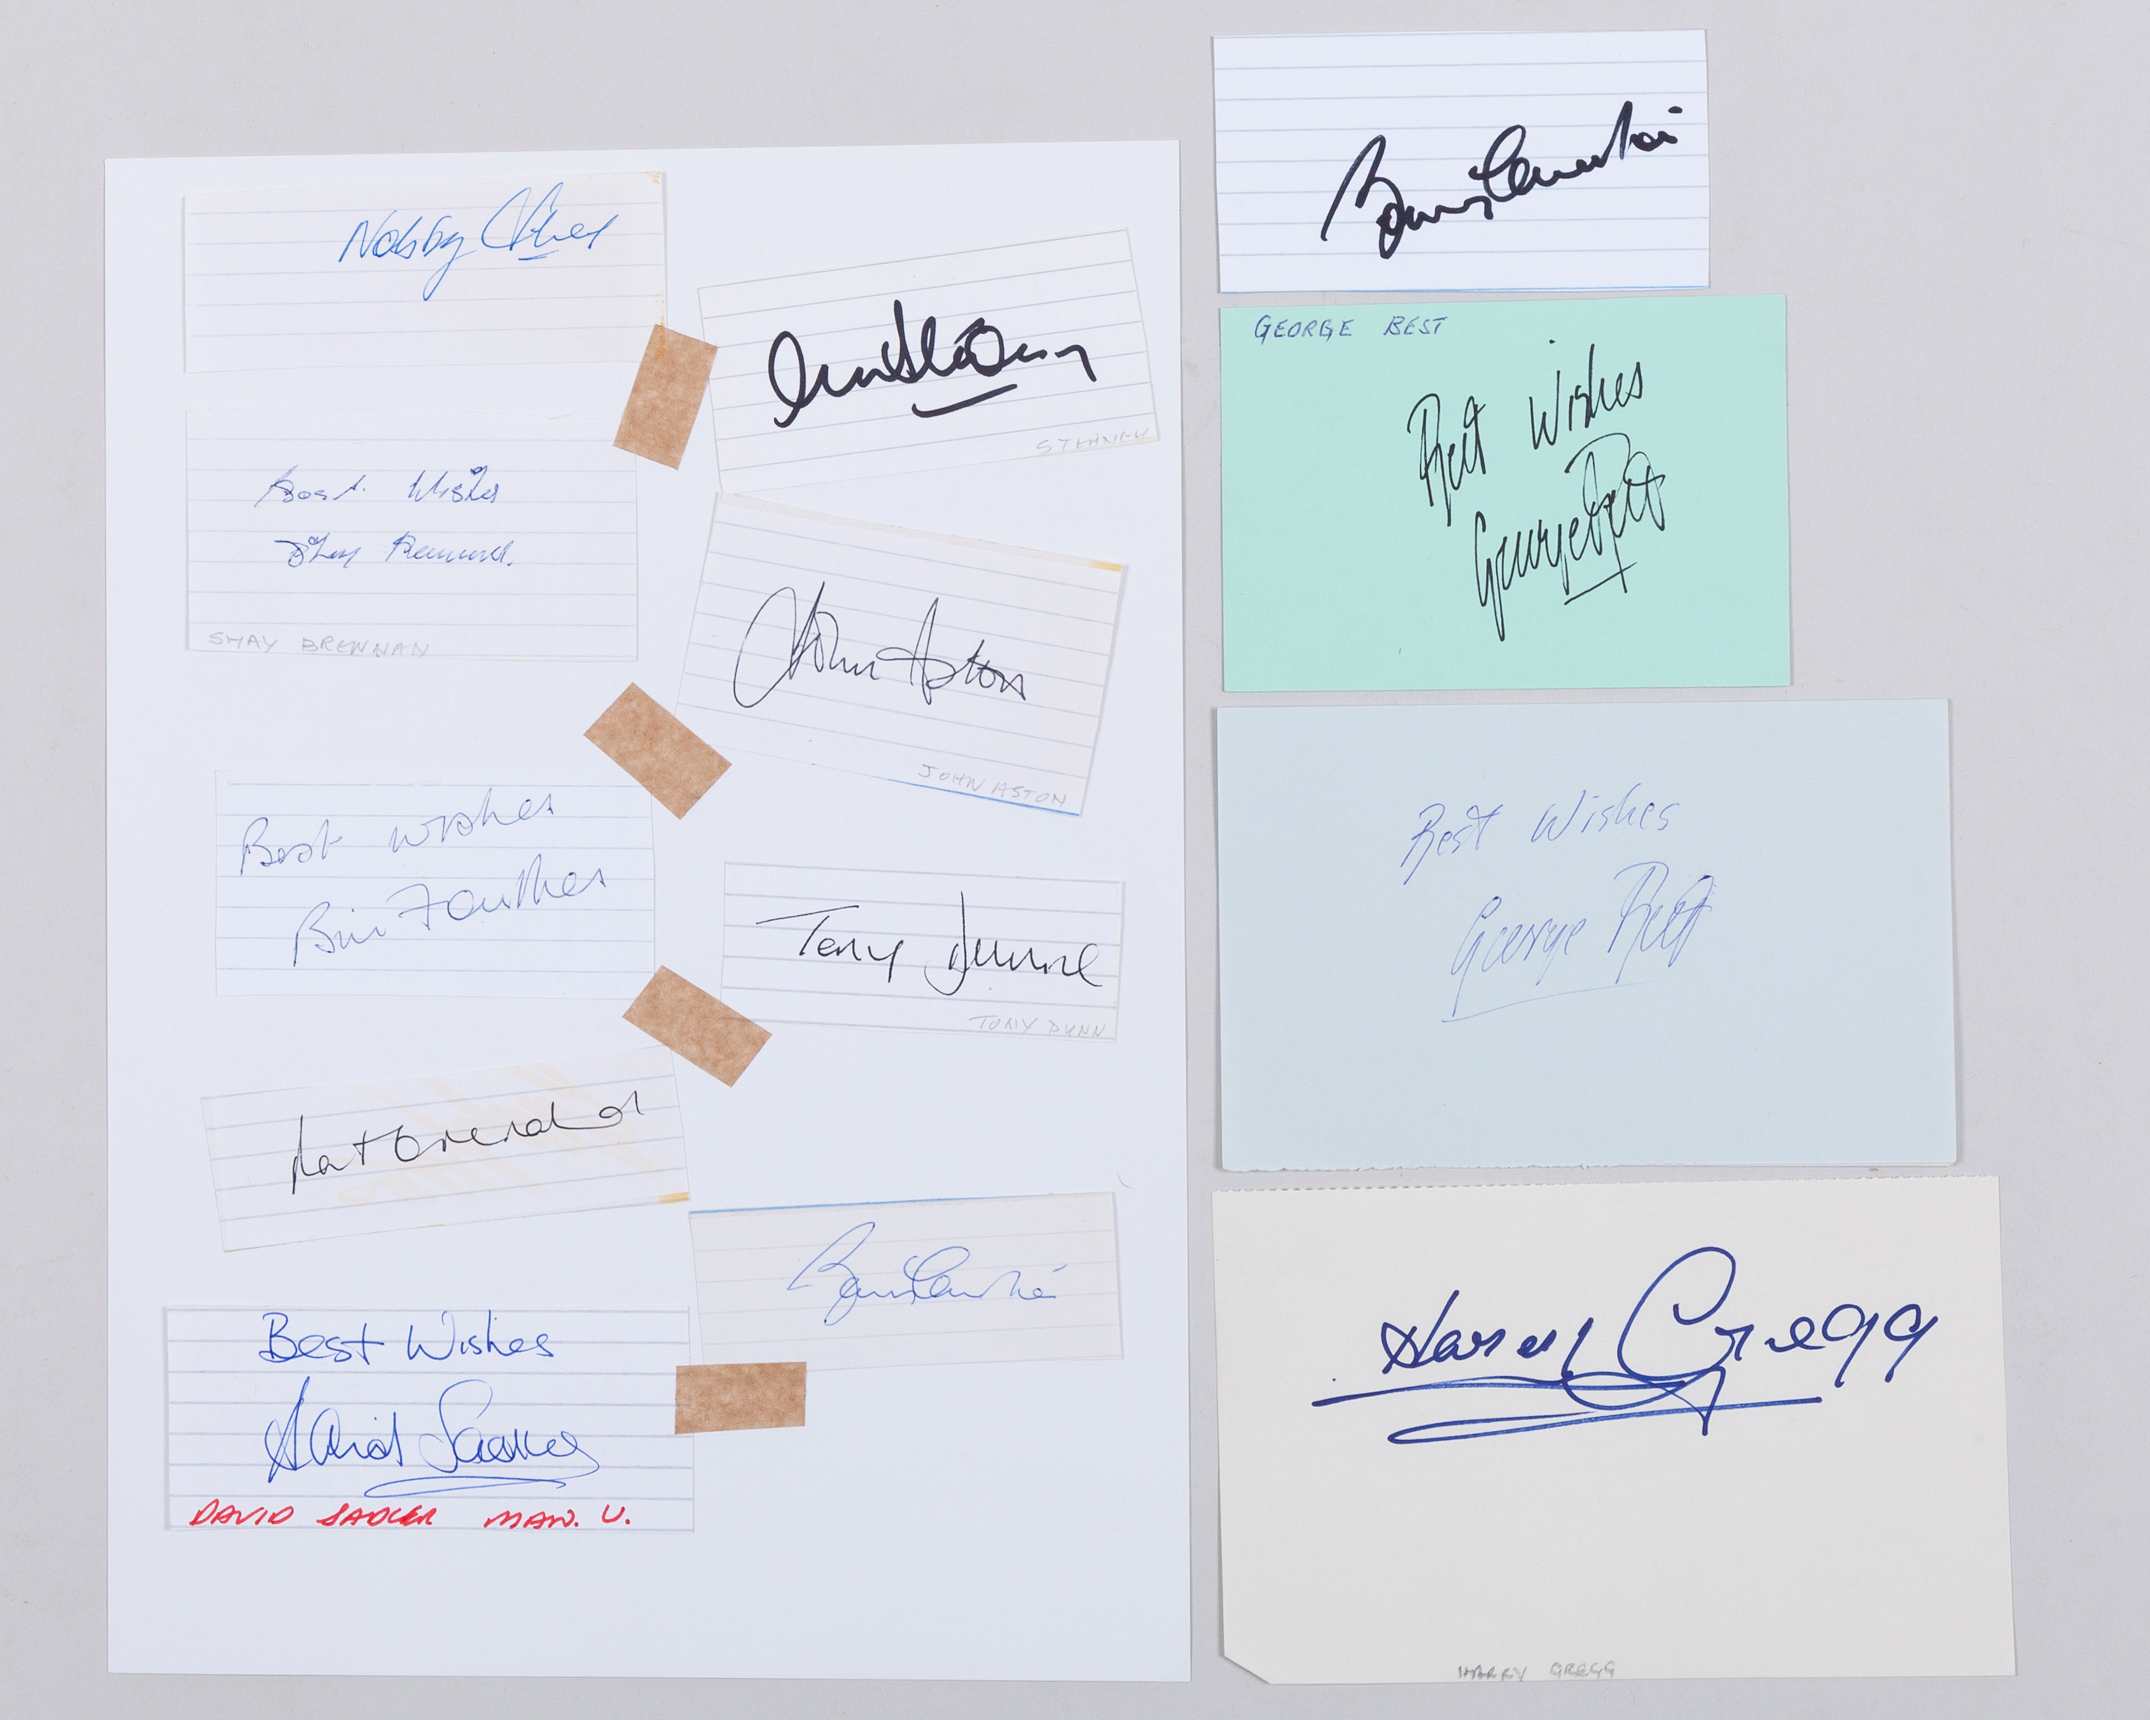 Nobby Stiles
Best Wishes
Shay Brennan
SHAY BRENNAN
Best wishes
Bill Foulkes
Pat Crerand
Best Wishes
David Sadler
DAVID SADLER MAN. U.
STEPNEY
John Aston
JOHN ASTON
Tony Dunne
TONY DUNN
Bobby Charlton
Bobby Charlton
GEORGE BEST
Best Wishes
George Best
Best Wishes
George Best
Harry Gregg
HARRY GREGG